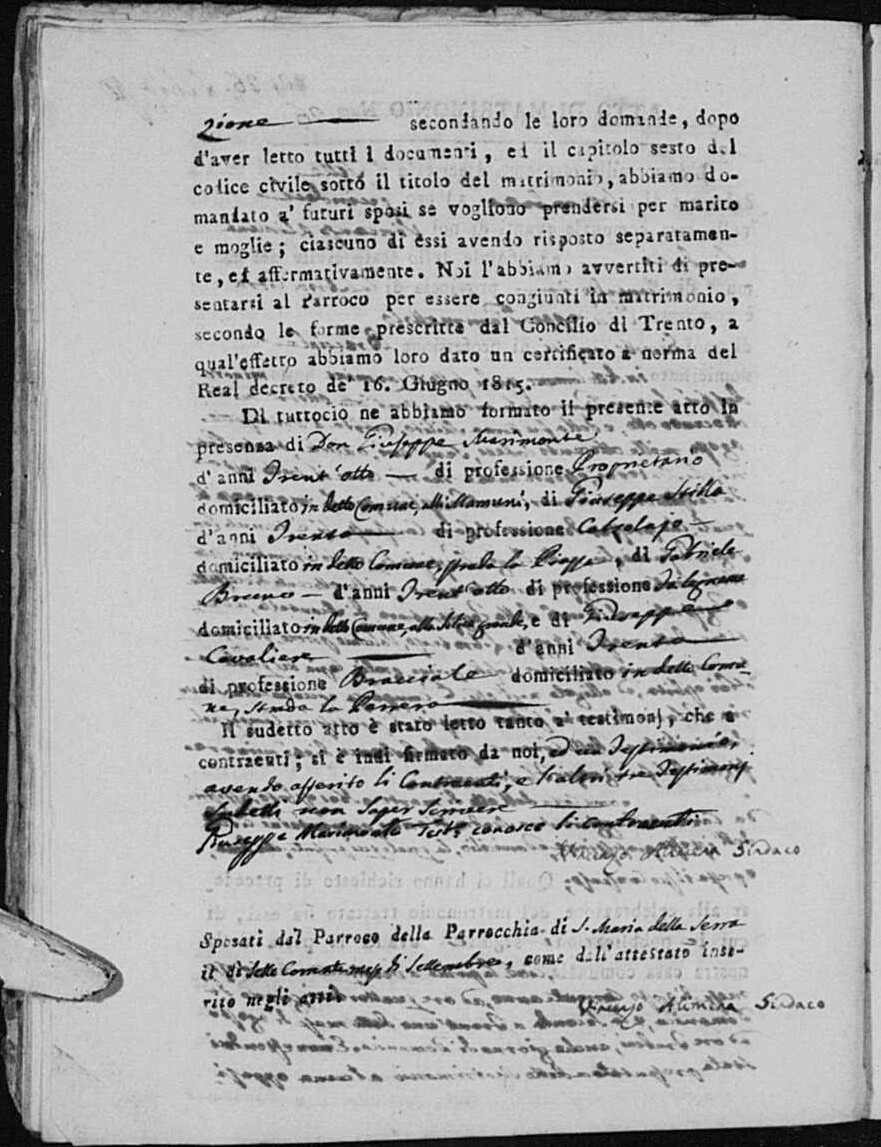 zione secondando le loro domande, dopo
d'aver letto tutti i documenti, ed il capitolo sesto del
codice civile sotto il titolo del matrimonio, abbiamo do-
mandato a' futuri sposi se vogliono prendersi per marito
e moglie; ciascuno di essi avendo risposto separatamen-
te, ed affermativamente. Noi l'abbiamo avvertiti di pre-
sentarsi al Parroco per essere congiunti in matrimonio,
secondo le forme prescritte dal Concilio di Trento, a
qual'effetto abbiamo loro dato un certificato a norma del
Real decreto de' 16. Giugno 1815.
Di tuttociò ne abbiamo formato il presente atto in
presenza di Don Giuseppe Marimonte
d'anni Trent'otto di professione Proprietario
domiciliato in detto Comune, alli Mamuni, di Giuseppe
d'anni Trenta di professione Calzolajo
domiciliato in detto Comune, strada la Piazza, di Gabriele
d'anni Trent'otto di professione Falegname
domiciliato in detto Comune, e di Giuseppe
Cavaliere d'anni Trenta
di professione Bracciale domiciliato in detto Comu-
ne, strada la
Il sudetto atto è stato letto tanto a' testimonj, che a
contraenti; si è indi firmato da noi, ed un Testimonio,
avendo asserito li Contraenti, e li altri tre Testimonj
sudetti non saper scrivere
Giuseppe Marimonte Test. conosco li contraenti
Alimena Sindaco
Sposati dal Parroco della Parrocchia di S. Maria della Serra
il dì sette Corrente mese di Settembre, come dall'attestato inse-
rito negli atti
Alimena Sindaco